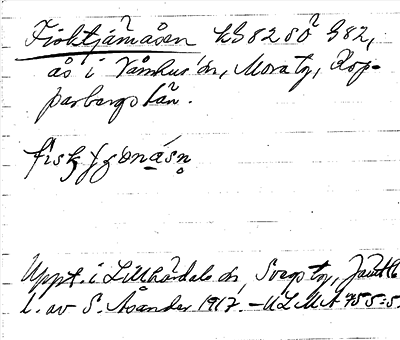 Fisktjärnåsen KB 82 SO B82,
ås i Våmhus sn, Mora tg, Kop-
parbergs län.
Uppt. i Lillhärdals sn, Svegs tg, Jämtl.
l. av S. Asånder 1917. – ULMA 755:5.